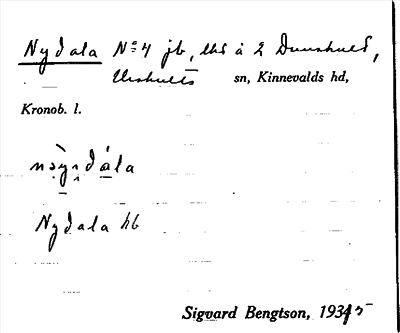 Nydala No 4 jb, lhd å 2 Dunshult,
Urshults sn, Kinnevalds hd,
Kronob. l.
nə̀yṇdála
Nydala hb
Sigvard Bengtson, 1935